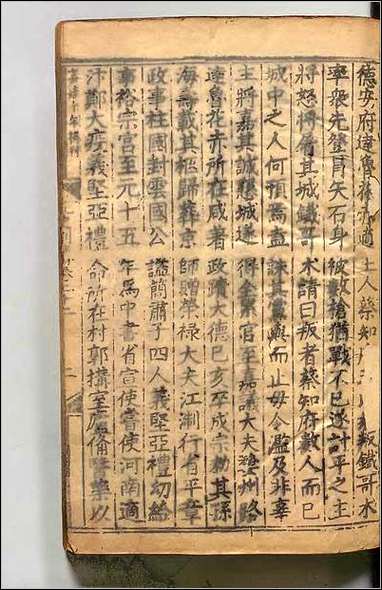 德安府達魯花赤適土人蔡知叛鐵哥朮
率衆先登冒矢石身被數槍猶戰不已遂討平之主
將怒將屠其城鐵哥朮請曰叛者蔡知府數人而已
城中之人何預焉盍誅其黨與而止毋令濫及非辜
主將嘉其誠懇城遂得全累官至嘉議大夫婺州路
達魯花赤所在咸著政蹟大德己亥卒成宗勅其孫
海壽載其柩歸葬京師贈榮祿大夫江浙行省平章
政事柱國封雲國公謚簡肅子四人義堅亞禮幼給
事裕宗宮至元十五年爲中書省宣使嘗使河南適
汴鄭大疫義堅亞禮命所在村郭搆室廬備醫藥以
嘉靖十年補刊